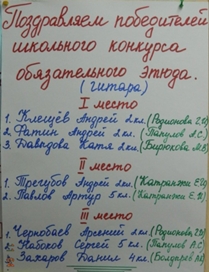 Поздравляем победителей
школьного конкурса
обязательного этюда.
(гитара)
I место
1. Клещёв Андрей 2 кл. (Родионова
2. Ратин Андрей 2 кл. (Папулов А.С.)
3. Давыдова Катя 2 кл. (Бирюкова М.В)
II место
1. Трегубов Андрей кл. (Катранжи
2. Павлов Артур 5 кл. (Катранжи
III место
1. Чернобаев Арсений 2 кл. (Родионова
2. Набоков Сергей 5 кл. (Папулов А.С)
3. Захаров Данил 4 кл.